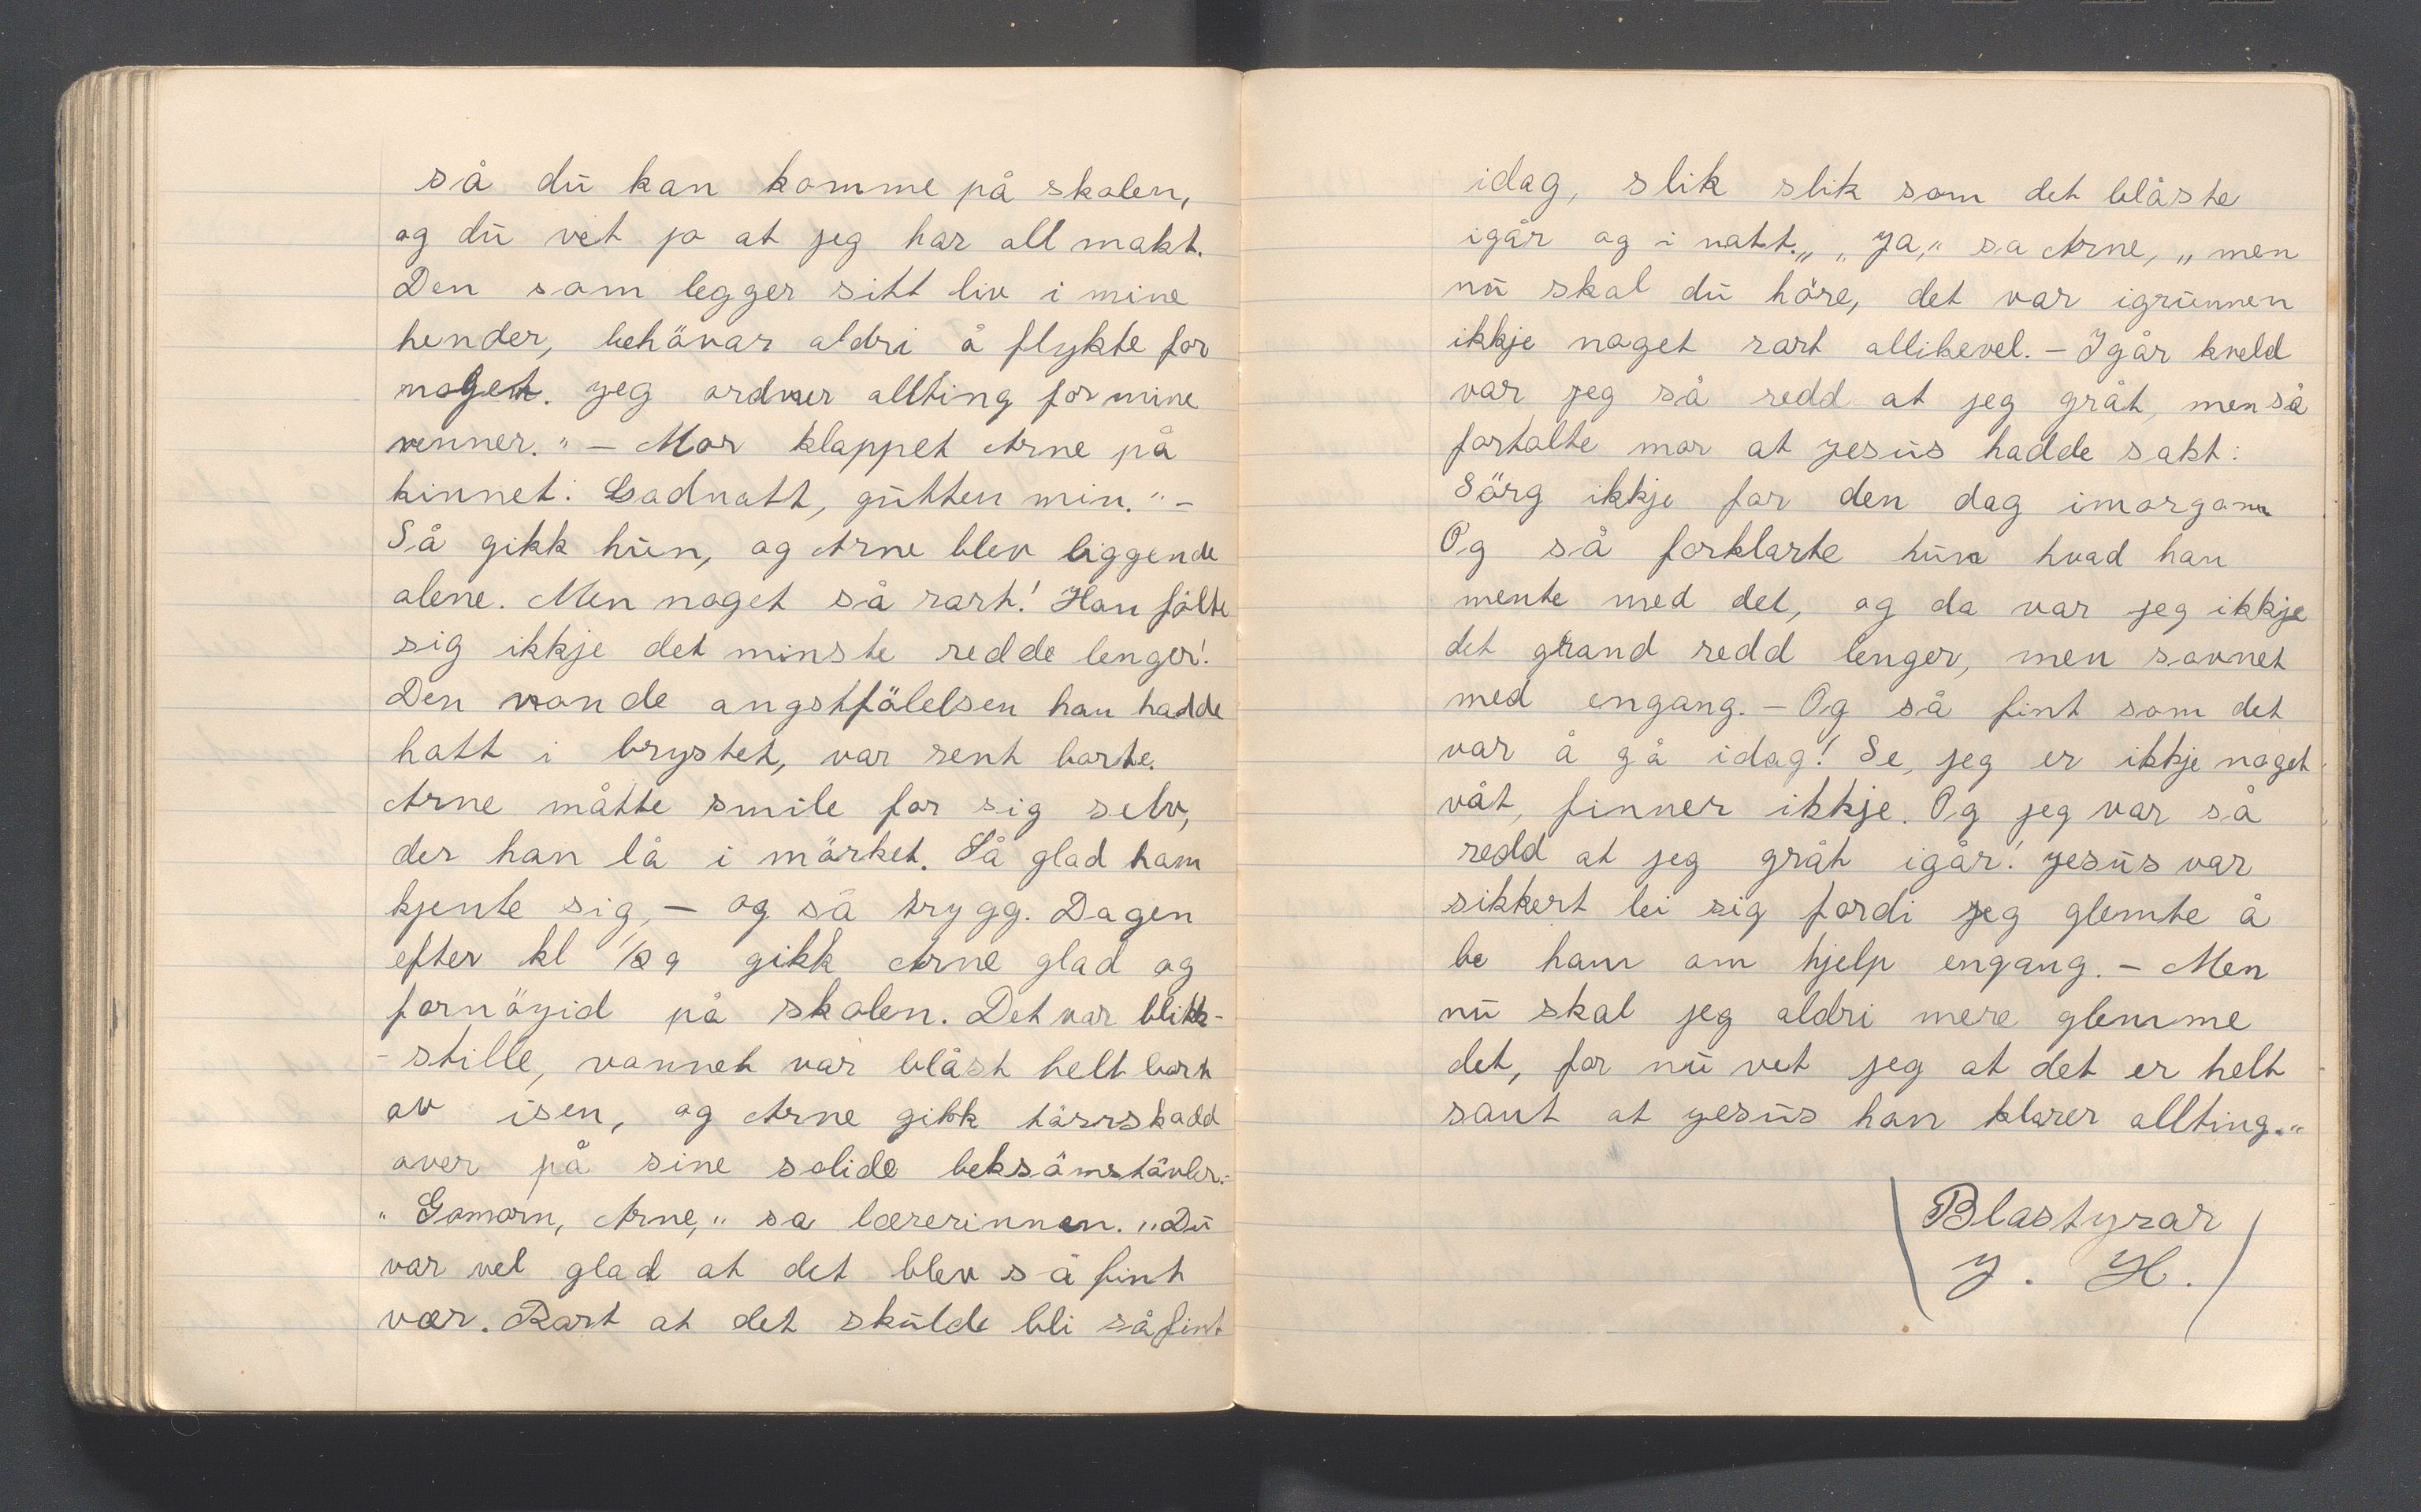 så du kan komme på skolen,
og du vet jo at jeg har all makt.
Den som legger sitt liv i mine
hender, behövar aldri å flykte for
noget. Jeg ordner allting for mine
venner." – Mor klappet Arne på
kinnet: Godnatt, gutten min." –
Så gikk hun, og Arne blev liggende
alene. Men noget så rart! Han fölte
sig ikkje det minste redde lenger!
Den vonde angstfölelsen han hadde
hatt i brystet, var rent borte.
Arne måtte smile for sig selv,
der han lå i mörket. Så glad ham
kjente sig, – og så trygg. Dagen
efter kl 1/2 9 gikk Arne glad og
fornöyid på skolen. Det var blikk-
-stille, vannet var blåst helt bort
av isen, og Arne gikk törrskodd
over på sine solide beksömstövler.-
"Gomorn, Arne," sa lærerinnen. "Du
var vel glad at det blev så fint
vær. Rart at det skulde bli så fint
idag, slik slik som det blåste
igår og i natt." "Ja," sa Arne, "men
nu skal du höre, det var igrunnen
ikkje noget rart allikevel. – Igår kveld
var jeg så redd at jeg gråt, men så
fortalte mor at Jesus hadde sakt:
Sörg ikkje for den dag imorgon
Og så forklarte hun hvad han
mente med det, og da var jeg ikkje
det grand redd lenger, men sovnet
med engang. – Og så fint som det
var å gå idag! Se, jeg er ikkje noget
våt, finner ikkje. Og jeg var så
redd at jeg gråt igår! Jesus var
sikkert lei sig fordi jeg glemte å
be ham om hjelp engang. – Men
nu skal jeg aldri mere glemme
det, for nu vet jeg at det er helt
sant at Jesus han klarer allting."
(Blastyrar
J. H.)